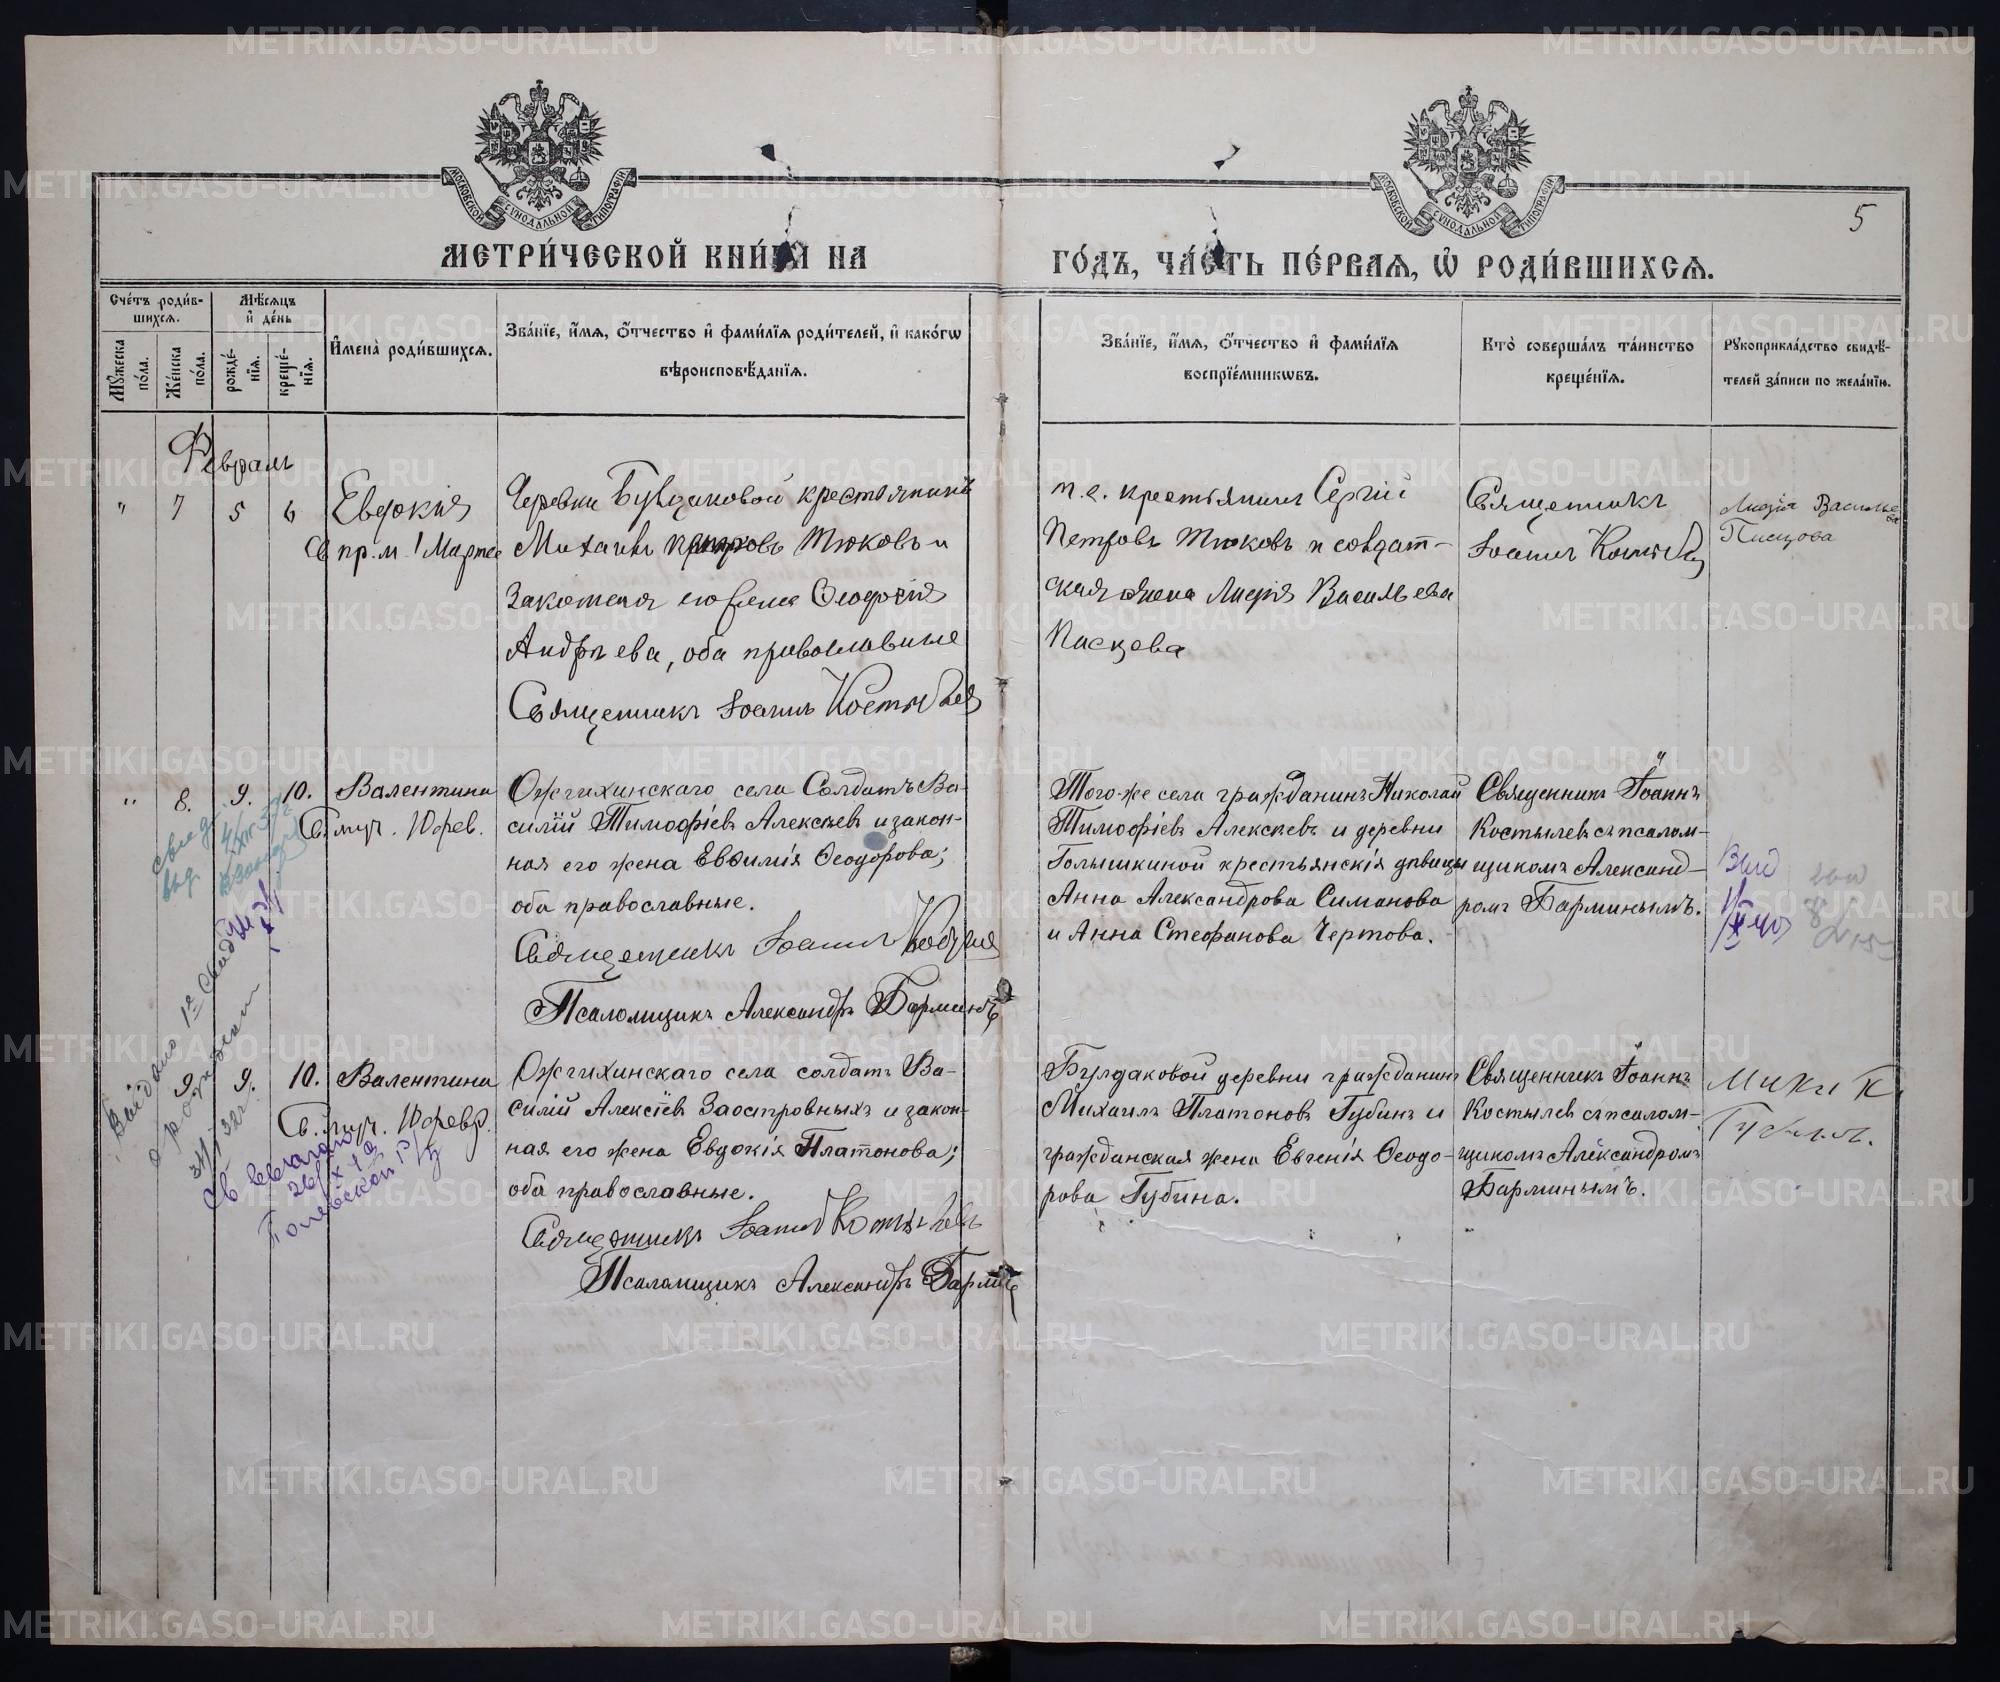 МОСКОВСКОЙ СУНОДАЛЬНОЙ ТИПОГРАФІИ
МОСКОВСКОЙ СУНОДАЛЬНОЙ ТИПОГРАФІИ
5
МЕТРИ́ЧЕСКОЙ КНИ́ГИ НА
ГО́ДЪ, ЧА́СТЬ ПЕ́РВАЯ, Ѡ҆ РОДИ́ВШИХСЯ.
Сче́тъ роди́в-
шихся.
Мѣ́сяцъ
и҆ де́нь
Мꙋ́жеска
по́ла.
Же́нска
по́ла.
рожде́-
нїя.
креще́-
нїя.
И҆мена̀ роди́вшихся.
Зва́нїе, и҆́мя, ѻ҆́тчество и҆ фами́лїя роди́телей, и҆ како́гѡ
вѣроисповѣ́данїя.
Зва́нїе, и҆́мя, ѻ҆́тчество и҆ фами́лїя
воспрїе́мникѡвъ.
Кто̀ соверша́лъ та́инство
креще́нїя.
Рꙋкоприкла́дство свидѣ́-
телей за́писи по жела́нїю.
Февраль
" 7 5 6 Евдокия
Св. пр. м. 1 Марта
Деревни Булдаковой крестьянинъ
Михаилъ Петровъ Тюковъ и
Законная его жена Ѳеодосія
Андреева, оба православные
Священникъ Іоаннъ Костылевъ
т. е. крестьянинъ Сергій
Петровъ Тюковъ и солдат-
ская жена Лидія Васильева
Писцова
Священникъ
Іоаннъ Костылевъ
Лидія Васильева
Писцова
" 8. 9. 10. Валентина
Св. муч. 10 фев.
Ожгихинскаго села Солдатъ Ва-
силій Тимофіевъ Алексѣевъ и закон-
ная его жена Евѳимія Ѳеодорова;
оба православные.
Священникъ Іоаннъ Костылевъ
Псаломщикъ Александръ Барминъ
Того-же села гражданинъ Николай
Тимофіевъ Алексѣевъ и деревни
Голышкиной крестьянскія дѣвицы
Анна Александрова Симанова
и Анна Стефанова Чертова.
Священникъ Іоаннъ
Костылевъ съ псалом-
щикомъ Александ-
ромъ Барминымъ.
9. 9. 10. Валентина
Св. муч. 10 февр.
Ожгихинскаго села солдатъ Ва-
силій Алексіевъ Заостровныхъ и закон-
ная его жена Евдокія Платонова;
оба православные.
Священникъ Іоаннъ Костылевъ
Псаломщикъ Александръ Барминъ
Булдаковой деревни гражданинъ
Михаилъ Платоновъ Губинъ и
гражданская жена Евгенія Ѳеодо-
рова Губина.
Священникъ Іоаннъ
Костылевъ съ псалом-
щикомъ Александромъ
Барминымъ.
Губинъ.
Выдано 1е свид
о рожденіи
METRIKI.GASO-URAL.RU